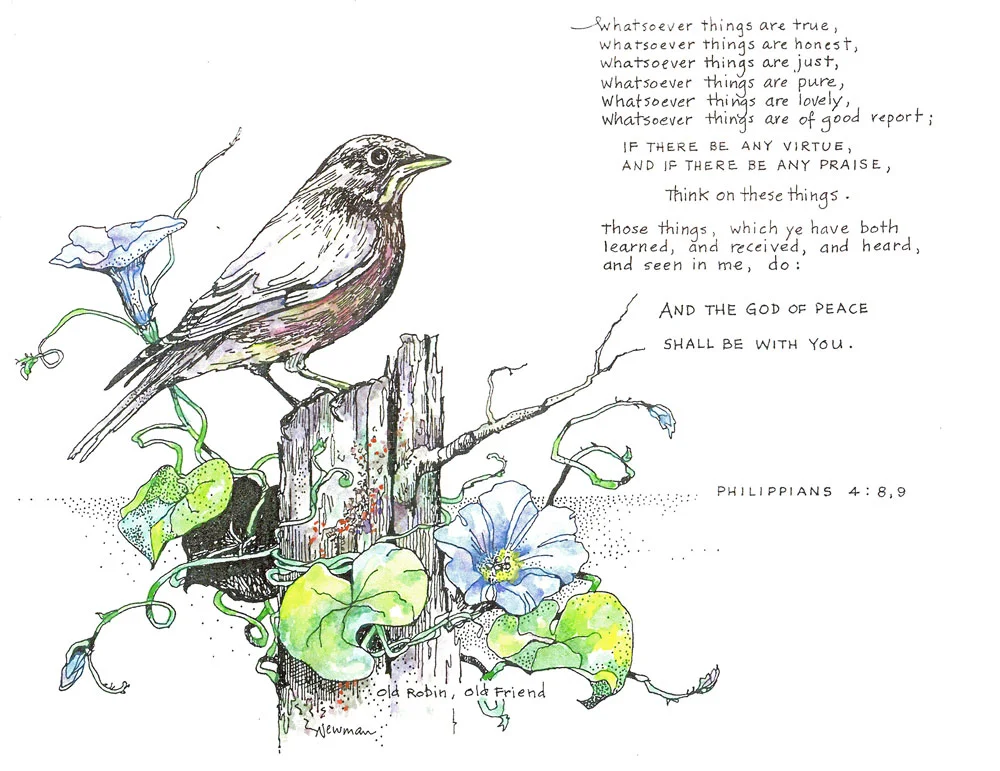 Whatsoever things are true,
whatsoever things are honest,
whatsoever things are just,
whatsoever things are pure,
whatsoever things are lovely,
whatsoever things are of good report;
IF THERE BE ANY VIRTUE,
AND IF THERE BE ANY PRAISE,
Think on these things.
Those things, which ye have both
learned, and received, and heard,
and seen in me, do:
AND THE GOD OF PEACE
SHALL BE WITH YOU.
PHILIPPIANS 4:8,9
Old Robin, Old Friend
Newman